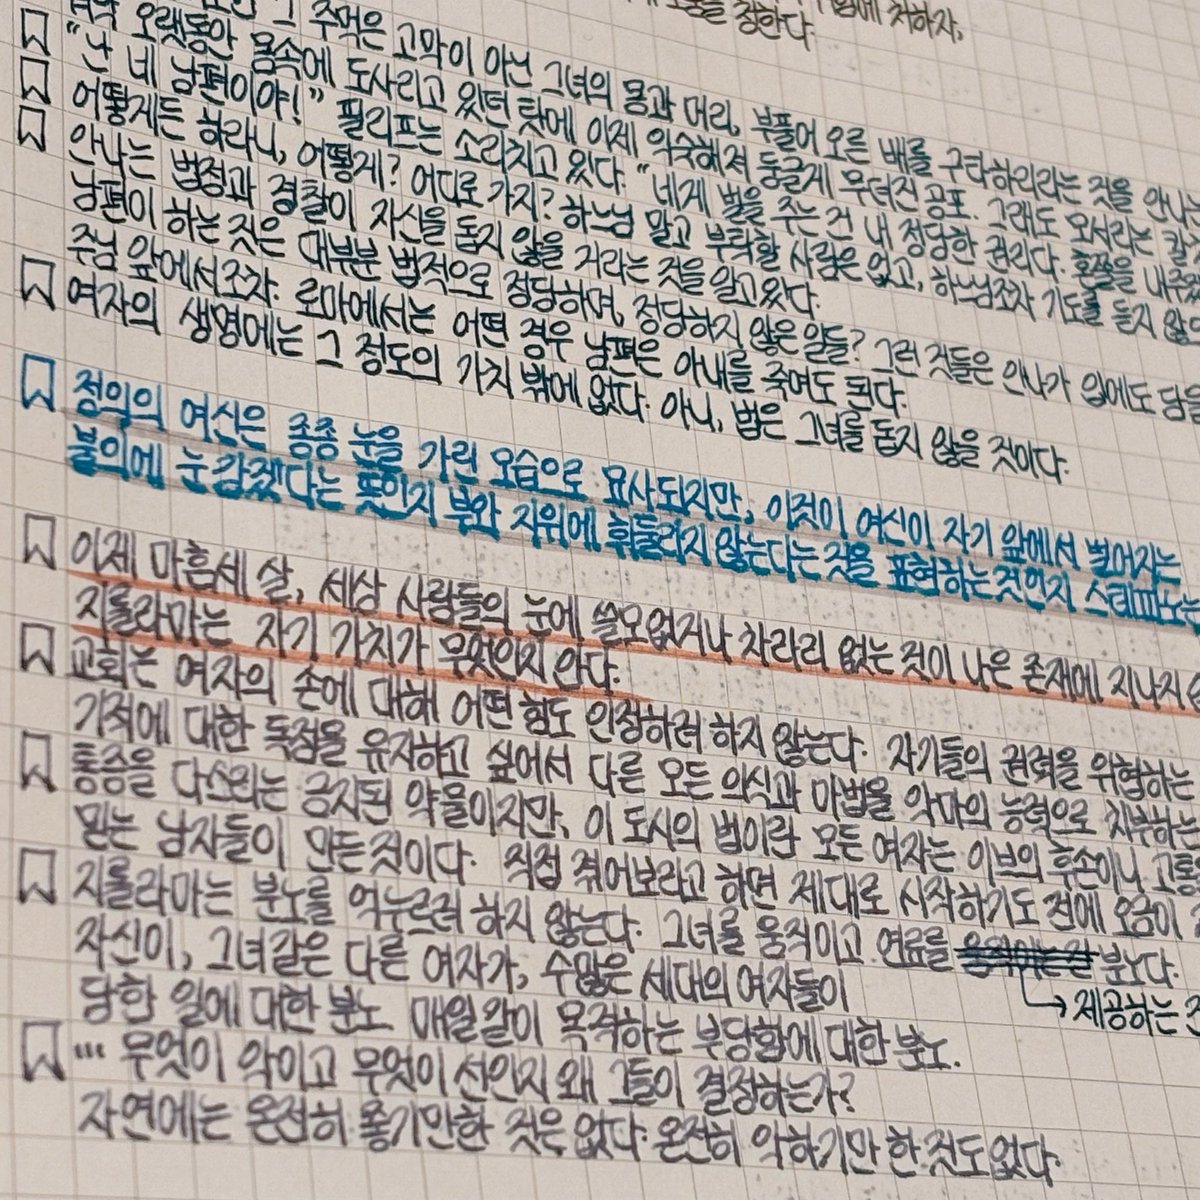 고통을 청한다. 에 처하자,
그 주먹은 고막이 아닌 그녀의 몸과 머리, 부풀어 오른 배를 구타하리라는 것을 안나는
오랫동안 몸속에 도사리고 있던 탓에 이제 익숙해져 둥글게 무뎌진 공포. 그래도 모서리는 칼
"난 네 남편이야!" 필리프는 소리치고 있다. "네게 벌을 주는 건 내 정당한 권리다.
어떻게든 하라니, 어떻게? 어디로 가지? 하느님 말고 부탁할 사람은 없고, 하느님조차 기도를 듣지 않
안나는 법정과 경찰이 자신을 돕지 않을 거라는 것을 알고있다.
남편이 하는 것은 대부분 법적으로 정당하며, 정당하지 않은 일들? 그런 것들은 안나가 입에도 담을
주님 앞에서조차. 로마에서는 어떤 경우 남편은 아내를 죽여도 된다.
여자의 생명에는 그 정도의 가치 밖에 없다. 아니, 법은 그녀를 돕지 않을 것이다.
정의의 여신은 종종 눈을 가린 모습으로 묘사되지만, 이것이 여신이 자기 앞에서 벌어지는
불의에 눈감겠다는 뜻인지 부와 지위에 휘둘리지 않는다는 것을 표현하는것인지 스테파노는
이제 마흔세 살, 세상 사람들의 눈에 쓸모없거나 차라리 없는 것이 나은 존재에 지나지
지롤라마는 자기 가치가 무엇인지 안다.
교회는 여자의 손에 대해 어떤 힘도 인정하려 하지 않는다. 자기들의 권력을 위협하는
기적에 대한 독점을 유지하고 싶어서 다른 모든 의식과 마법을 악마의 능력으로 치부하는
통증을 다스리는 금지된 약물이지만, 이 도시의 법이란 모든 여자는 이브의 후손이니 고통
믿는 남자들이 만든것이다. 직접 겪어보라고 하면 제대로 시작하기도 전에 오금이
지롤라마는 분노를 억누르려 하지 않는다. 그녀를 움직이고 연료를 분노다.
제공하는
자신이, 그녀같은 다른 여자가, 수많은 세대의 여자들이
당한 일에 대한 분노. 매일같이 목격하는 부당함에 대한 분노.
… 무엇이 악이고 무엇이 선인지 왜 그들이 결정하는가?
자연에는 온전히 좋기만한 것은 없다. 온전히 악하기만 한 것도 없다.